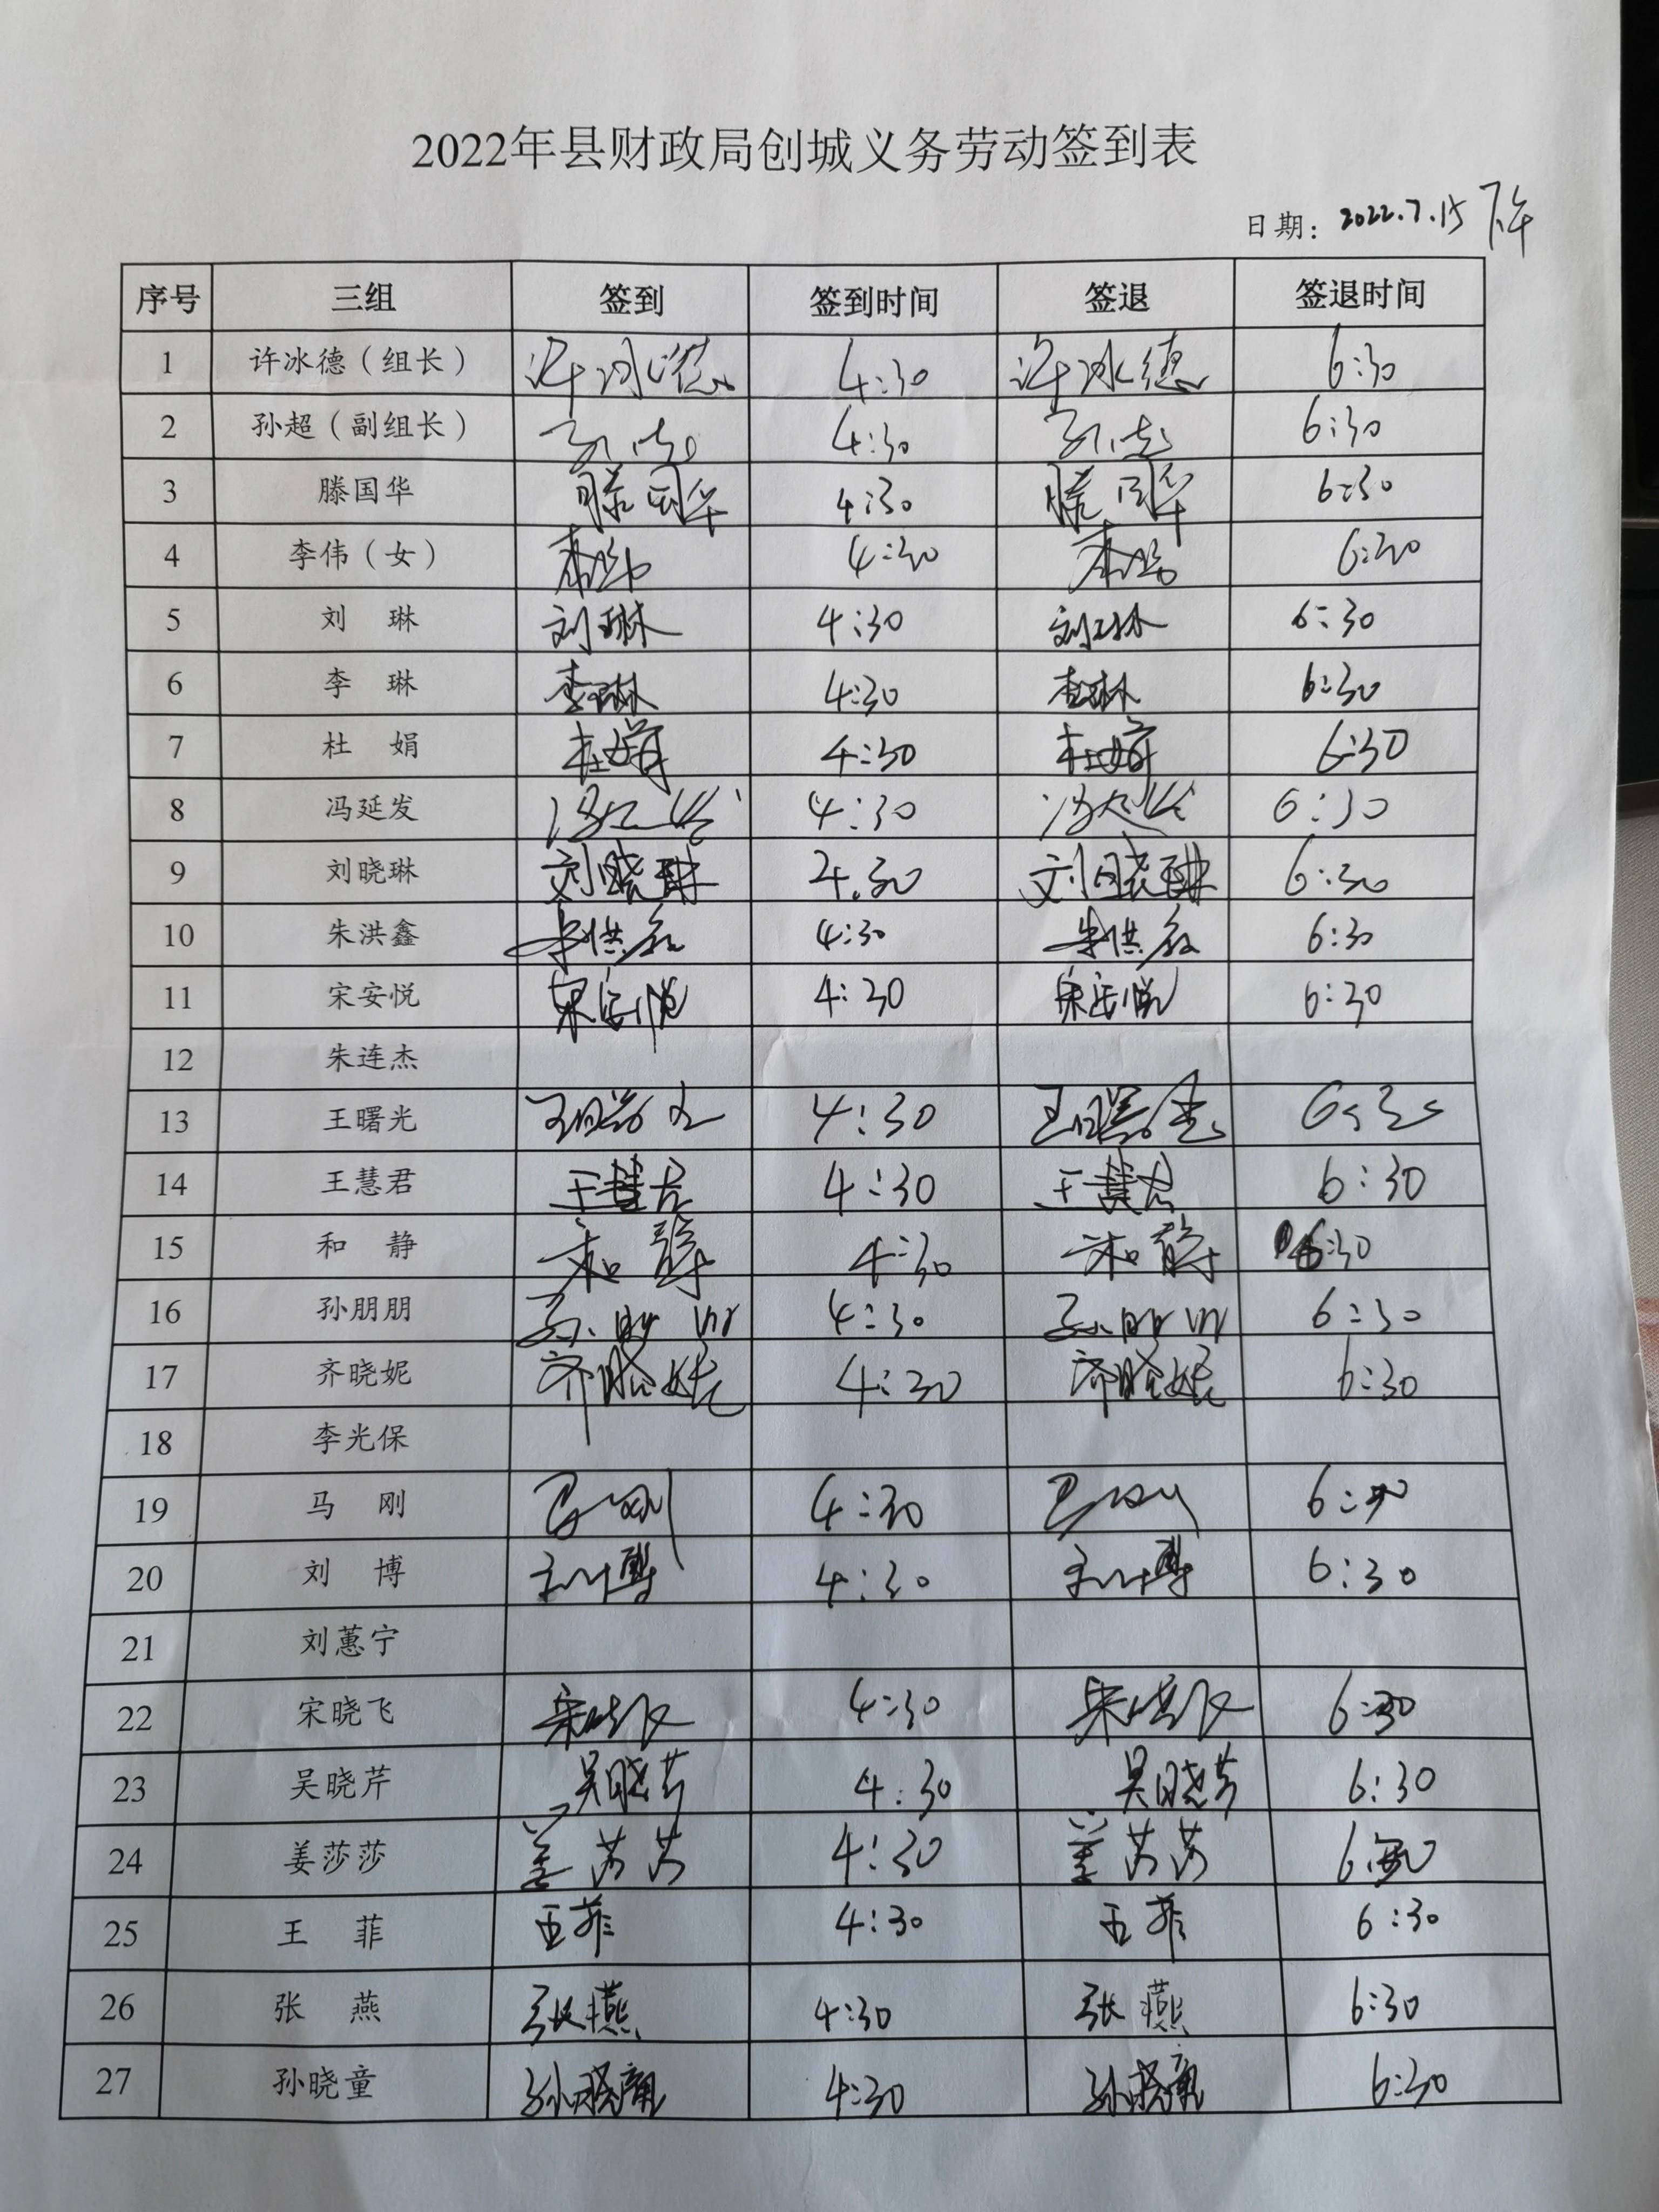 2022年县财政局创城义务劳动签到表
日期：2022.7.15 下午
序号 三组 签到 签到时间 签退 签退时间
1 许冰德（组长） 许冰德 4:30 许冰德 6:30
2 孙超（副组长） 孙超 4:30 孙超 6:30
3 滕国华 滕国华 4:30 滕国华 6:30
4 李伟（女） 李伟 4:30 李伟 6:30
5 刘 琳 刘琳 4:30 刘琳 6:30
6 李 琳 李琳 4:30 李琳 6:30
7 杜 娟 杜娟 4:30 杜娟 6:30
8 冯延发 冯延发 4:30 冯延发 6:30
9 刘晓琳 刘晓琳 4.30 刘晓琳 6:30
10 朱洪鑫 朱洪鑫 4:30 朱洪鑫 6:30
11 宋安悦 宋安悦 4:30 宋安悦 6:30
12 朱连杰
13 王曙光 王曙光 4:30 王曙光 6:30
14 王慧君 王慧君 4:30 王慧君 6:30
15 和 静 和静 4:30 和静 6:30
16 孙朋朋 孙朋朋 4:30 孙朋朋 6:30
17 齐晓妮 齐晓妮 4:30 齐晓妮 6:30
18 李光保
19 马 刚 马刚 4:30 马刚 6:30
20 刘 博 刘博 4:30 刘博 6:30
21 刘蕙宁
22 宋晓飞 宋晓飞 4:30 宋晓飞 6:30
23 吴晓芹 吴晓芹 4:30 吴晓芹 6:30
24 姜莎莎 姜莎莎 4:30 姜莎莎 6:30
25 王 菲 王菲 4:30 王菲 6:30
26 张 燕 张燕 4:30 张燕 6:30
27 孙晓童 孙晓童 4:30 孙晓童 6:30